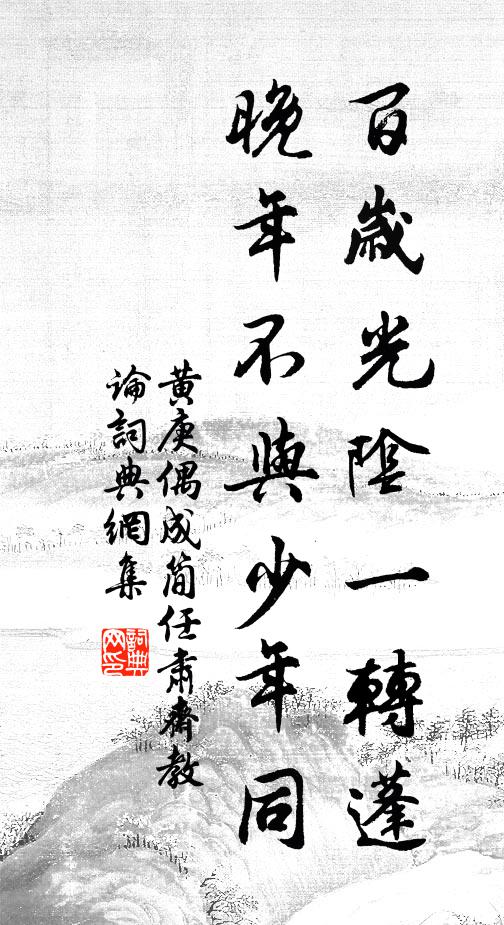 百歲光陰一轉蓬
晚年不與少年同
黃庚偶成簡任肅齋教
論詞典網集
詞典网印